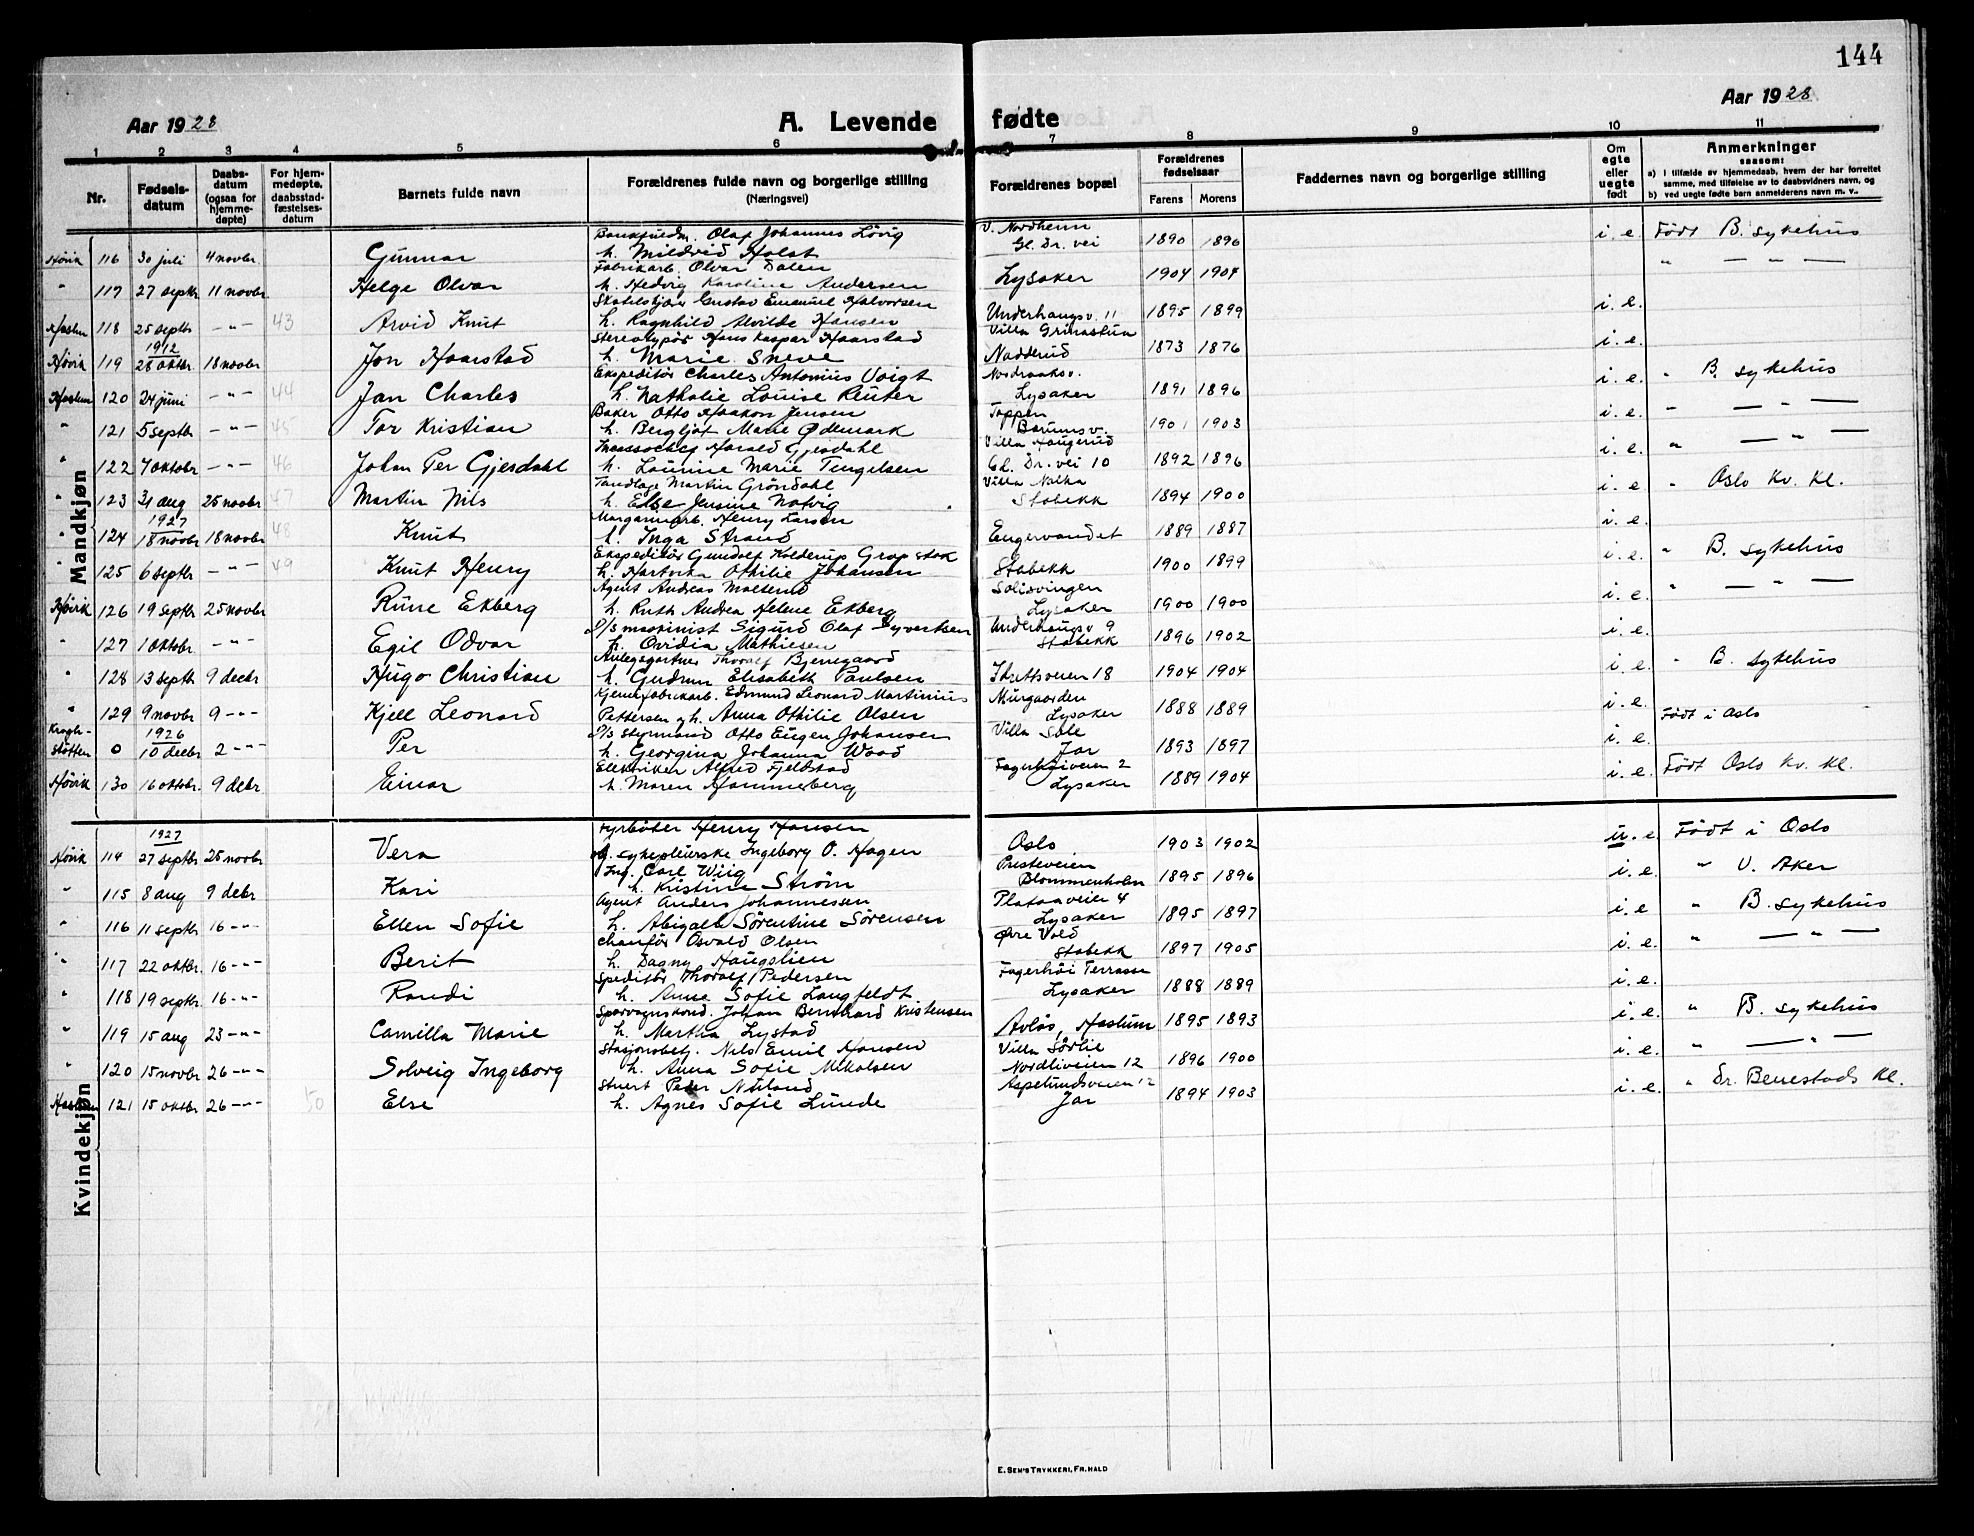 144
Aar 1928 A. Levende fødte Aar 1928
1 2 3 4 5 6 7 8 9 10 11
Nr. Fødsels-datum Daabs-datum (ogsaa for hjemme-døpte) For hjem-medøpte, daabsstad-fæstelses-datum Barnets fulde navn Forældrenes fulde navn og borgerlige stilling (Næringsvei) Forældrenes bopæl Forældrenes fødselsaar Farens Morens Faddernes navn og borgerlige stilling Om egte eller uegte født Anmerkninger saasom: a) I tilfælde av hjemmedaab, hvem der har forrettet samme, med tilføielse av to daabsvidners navn, og b) ved uegte fødte barn anmelderens navn m. v..
Mandkjøn
Bankfuldm. Olaf Johannes Lövig V. Nordheim
Hövik 116 30 juli 4 novbr Gunnar h. Mildrid Holst Gl. Dr. vei 1890 1896 i. e. Födt B. sykehus
Fabrikarb. Olvar Dalen
" 117 27 septr 11 novbr Helge Olvar h. Hedvig Karoline Andersen Lysaker 1904 1904 " — " —
Gustav Emanuel Halvorsen
Haslum 118 25 septr — " — 43 Arvid Knut h. Ragnhild Alvilde Hansen Underhaugsv. 11 1895 1899 i. e.
1912 Stereotypör Hans Kaspar Haarstad Villa Grinastua
Hövik 119 28 oktbr. 18 novbr Jon Haarstad h. Marie Sneve Nadderud 1873 1876 i. e.
Ekspeditör Charles Antonius Voigt Nordraaksv.
Haslum 120 24 juni — " — 44 Jan Charles h. Nathalie Louise Reuter Lysaker 1891 1896 i. e. " B. sykehus
Baker Otto Haakon Jensen Toppen
" 121 5 septr — " — 45 Tor Kristian h. Bergljot Marie Ödemark Bærumsv. 1901 1903 i. e. " — " —
Harald Gjesdahl Villa Haugerud
" 122 7 oktobr — " — 46 Johan Per Gjesdahl h. Marie Tengelsen Gl. Dr. vei 10 1892 1896 i. e. " — " —
Tandlæge Martin Gröndahl Villa
" 123 31 aug 25 novbr 47 Martin Nils h. Else Jensine Natvig Stabekk 1894 1900 i. e " Oslo Kv. Kl.
1927 Margarinarb. Henry Larsen
" 124 18 novbr 18 novbr 48 Knut h. Inga Strand Engervandet 1889 1887 i. e.
Ekspeditör Gundolf Kolderup Gropstok
" 125 6 septr — " — 49 Knut Henry h. Othilie Johansen Stabekk 1900 1899 i. e. " B. sykehus
Agent Andreas Moeserud Solisvingen
Hövik 126 19 septr 25 novbr Rune Ekberg h. Ruth Andrea Helene Ekberg Lysaker 1900 1900 i. e. " — " —
D/s maskinist Sigurd Olaf Syvertsen Underhaugsv 9
" 127 1 oktobr. — " — Egil Odvar h. Ovidia Mathiesen Stabekk 1896 1902 i. e.
Anlegsgartner Thoralf Bjerregaard
" 128 13 septr 9 decbr Hugo Christian h. Gudrun Elisabeth Paulsen Idrettsveien 18 1904 1904 i. e. " B. sykehus
Kjemikfabrikarb. Edmund Leonard Martinius Murgaarden
" 129 9 novbr 9 — " — Kjell Leonard Pettersen og h. Anna Othilie Olsen Lysaker 1888 1889 i. e.
1926 D/s styrmand Otto Eugen Johansen Villa Sole
Krogh-stötten 0 10 decbr 2 — " — Per h. Georgina Johanna Wood Jar 1893 1897 i. e. Födt i Oslo
Elektriker Alfred Fjeldstad Fagerhöiveien 2
Hövik 130 16 oktobr. 9 debr Einar h. Maren Hammerberg Lysaker 1889 1904 i. e. Födt Oslo Kv. Kl.
Kvindekjøn
1927 Fyrböter Henry Hansen
Hövik 114 27 septbr 25 novbr Vera og sykepleierske Ingeborg O. Hagen Oslo 1903 1902 u. e. Födt i Oslo
Ing. Carl Wiig Presteveien
" 115 8 aug 9 debr Kari h. Kristine Ström Blommenholm 1895 1896 i. e. " V. Aker
Agent Anders Johannessen Platanveien 4
" 116 11 septr 16 — " — Ellen Sofie h. Abigael Sörentine Sörensen Lysaker 1895 1897 i. e " B. sykehus
Chauför Osvald Olsen Övre Vold
" 117 22 oktbr. 16 — " — Berit h. Dagny Haugslien Stabekk 1897 1905 i. e. " — " —
Speditör Thoralf Pedersen Fagerhöi Terrasse
" 118 19 septr. 16 — " — Randi h. Anna Sofie Langfeldt Lysaker 1888 1889 i. e.
Sporvognskond. Johan Bernhard Kristensen
" 119 15 aug 23 — " — Camilla Marie h. Martha Lystad Avlös, Haslum 1895 1893 i. e. " B. sykehus
Stasjonsbetj. Nils Emil Hansen Villa Sörlie
" 120 15 novbr 26 — " — Solveig Ingeborg h. Anna Sofie Nikolsen Nordliveien 12 1896 1900 i. e. " — " —
Stuert Peder Nuland Aspelundsveien 12
Haslum 121 15 oktbr 26 — " — 50 Else h. Agnes Sofie Lunde Jar 1894 1903 i. e. " Dr. Benestads Kl.
E. SEM'S TRYKKERI, FR.HALD